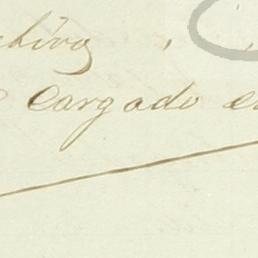 chivo
Cargado e